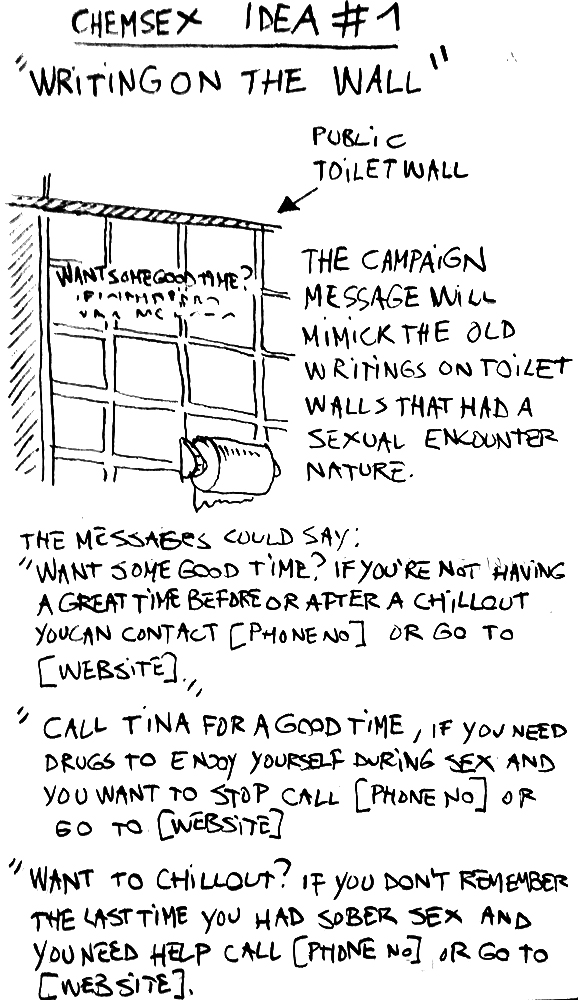 CHEMSEX IDEA #1
"WRITING ON THE WALL"
PUBLIC
TOILET WALL
WANT SOME GOOD TIME?
THE CAMPAIGN
MESSAGE WILL
MIMICK THE OLD
WRITINGS ON TOILET
WALLS THAT HAD A
SEXUAL ENCOUNTER
NATURE.
THE MESSAGES COULD SAY:
"WANT SOME GOOD TIME? IF YOU'RE NOT HAVING
A GREAT TIME BEFORE OR AFTER A CHILLOUT
YOU CAN CONTACT [PHONE NO] OR GO TO
[WEBSITE]."
"CALL TINA FOR A GOOD TIME, IF YOU NEED
DRUGS TO ENJOY YOURSELF DURING SEX AND
YOU WANT TO STOP CALL [PHONE NO] OR
GO TO [WEBSITE]
"WANT TO CHILLOUT? IF YOU DON'T REMEMBER
THE LAST TIME YOU HAD SOBER SEX AND
YOU NEED HELP CALL [PHONE NO] OR GO TO
[WEBSITE].